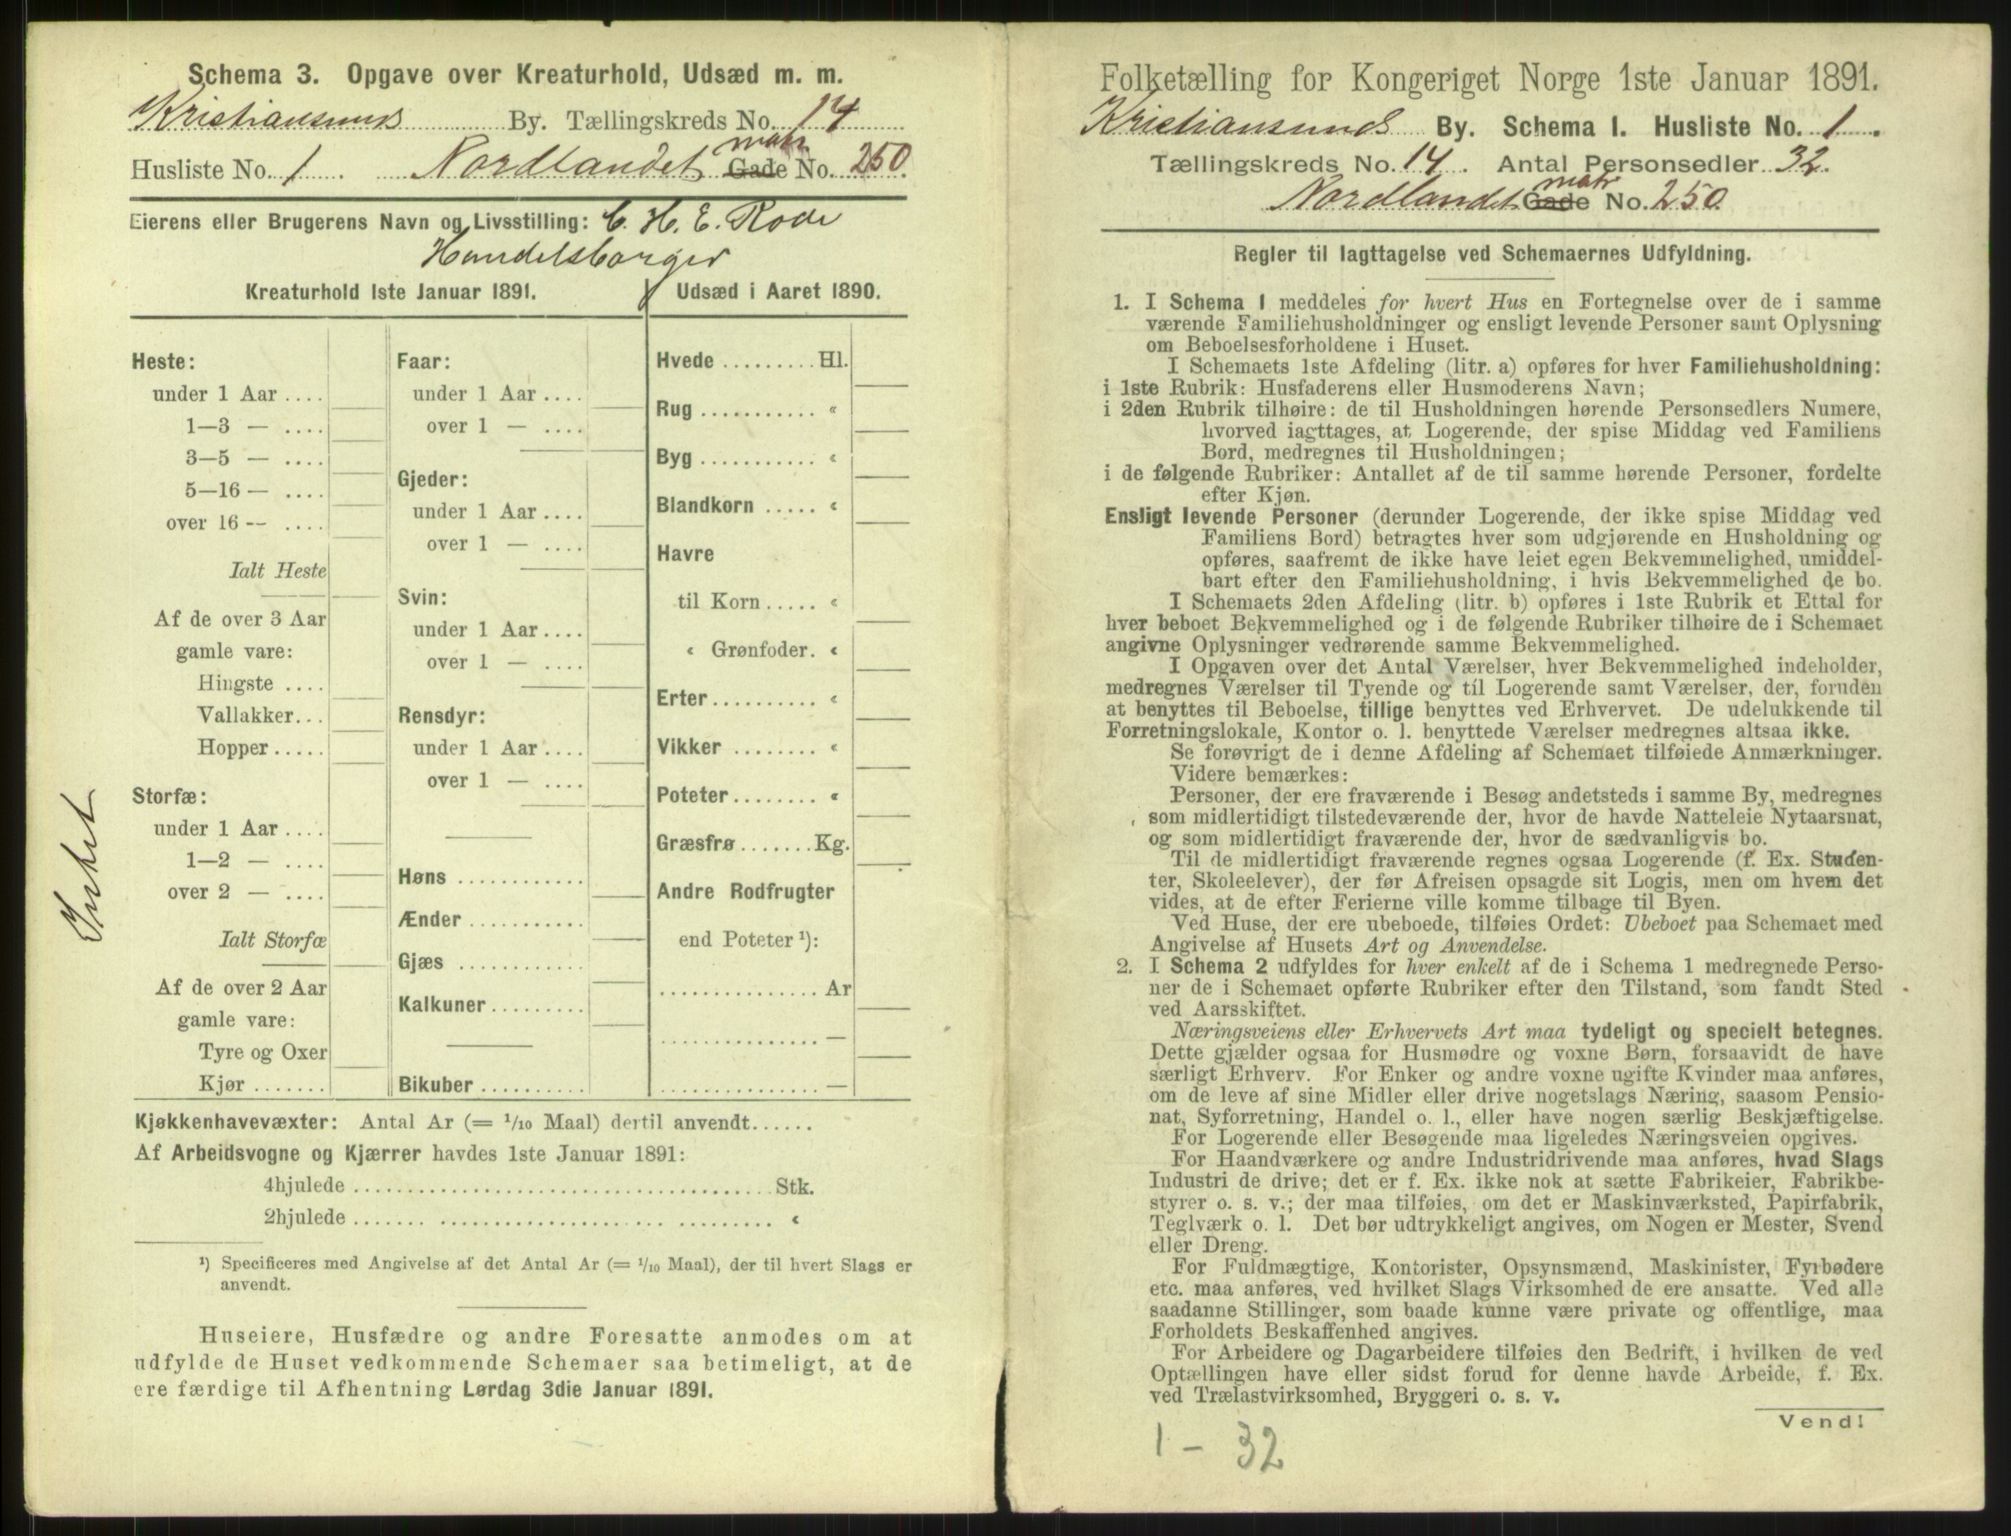 Schema 3. Opgave over Kreaturhold, Udsæd m. m.
Kristiansunds By. Tællingskreds No. 14
matr
Husliste No. 1 Nordlandet Gade No. 250.
Eierens eller Brugerens Navn og Livsstilling: C. H. E. Rode
Handelsborger
Kreaturhold 1ste Januar 1891.
Heste:
under 1 Aar ....
1—3 — ....
3—5 — ....
5—16 — ....
over 16 -- ....
Ialt Heste
Af de over 3 Aar
gamle vare:
Hingste ....
Vallakker...
Hopper .....
Storfæ:
under 1 Aar ....
1—2 — ....
over 2 — ....
Ialt Storfæ
Af de over 2 Aar
gamle vare:
Tyre og Oxer
Kjør .......
Faar:
under 1 Aar ....
over 1 — ....
Gjeder:
under 1 Aar ....
over 1 — ....
Svin:
under 1 Aar ....
over 1 — ....
Rensdyr:
under 1 Aar ....
over 1 — ....
Høns ............
Ænder ...........
Gjæs ............
Kalkuner .........
Bikuber ..........
Udsæd i Aaret 1890.
Hvede ......... Hl.
Rug ........... «
Byg ........... «
Blandkorn ..... «
Havre
til Korn ..... «
« Grønfoder. «
Erter .......... «
Vikker ........ «
Poteter ........ «
Græsfrø ....... Kg.
Andre Rodfrugter
end Poteter ¹):
............... Ar
............... —
............... —
Intet
Kjøkkenhavevæxter: Antal Ar (= 1/10 Maal) dertil anvendt......
Af Arbeidsvogne og Kjærrer havdes 1ste Januar 1891:
4hjulede ........................................ Stk.
2hjulede ........................................ «
¹) Specificeres med Angivelse af det Antal Ar (= 1/10 Maal), der til hvert Slags er
anvendt.
Huseiere, Husfædre og andre Foresatte anmodes om at
udfylde de Huset vedkommende Schemaer saa betimeligt, at de
ere færdige til Afhentning Lørdag 3die Januar 1891.
Folketælling for Kongeriget Norge 1ste Januar 1891.
Kristiansunds By. Schema 1. Husliste No. 1.
Tællingskreds No. 14. Antal Personsedler 32.
matr
Nordlandet Gade No. 250
Regler til Iagttagelse ved Schemaernes Udfyldning.
1. I Schema 1 meddeles for hvert Hus en Fortegnelse over de i samme
værende Familiehusholdninger og ensligt levende Personer samt Oplysning
om Beboelsesforholdene i Huset.
I Schemaets 1ste Afdeling (litr. a) opføres for hver Familiehusholdning:
i 1ste Rubrik: Husfaderens eller Husmoderens Navn;
i 2den Rubrik tilhøire: de til Husholdningen hørende Personsedlers Numere,
hvorved iagttages, at Logerende, der spise Middag ved Familiens
Bord, medregnes til Husholdningen;
i de følgende Rubriker: Antallet af de til samme hørende Personer, fordelte
efter Kjøn.
Ensligt levende Personer (derunder Logerende, der ikke spise Middag ved
Familiens Bord) betragtes hver som udgjørende en Husholdning og
opføres, saafremt de ikke have leiet egen Bekvemmelighed, umiddel-
bart efter den Familiehusholdning, i hvis Bekvemmelighed de bo.
I Schemaets 2den Afdeling (litr. b) opføres i 1ste Rubrik et Ettal for
hver beboet Bekvemmelighed og i de følgende Rubriker tilhøire de i Schemaet
angivne Oplysninger vedrørende samme Bekvemmelighed.
I Opgaven over det Antal Værelser, hver Bekvemmelighed indeholder,
medregnes Værelser til Tyende og til Logerende samt Værelser, der, foruden
at benyttes til Beboelse, tillige benyttes ved Erhvervet. De udelukkende til
Forretningslokale, Kontor o. l. benyttede Værelser medregnes altsaa ikke.
Se forøvrigt de i denne Afdeling af Schemaet tilføiede Anmærkninger.
Videre bemærkes:
Personer, der ere fraværende i Besøg andetsteds i samme By, medregnes
som midlertidigt tilstedeværende der, hvor de havde Natteleie Nytaarsnat,
og som midlertidigt fraværende der, hvor de sædvanligvis bo.
Til de midlertidigt fraværende regnes ogsaa Logerende (f. Ex. Studen-
ter, Skoleelever), der før Afreisen opsagde sit Logis, men om hvem det
vides, at de efter Ferierne ville komme tilbage til Byen.
Ved Huse, der ere ubeboede, tilføies Ordet: Ubeboet paa Schemaet med
Angivelse af Husets Art og Anvendelse.
2. I Schema 2 udfyldes for hver enkelt af de i Schema 1 medregnede Perso-
ner de i Schemaet opførte Rubriker efter den Tilstand, som fandt Sted
ved Aarsskiftet.
Næringsveiens eller Erhvervets Art maa tydeligt og specielt betegnes.
Dette gjælder ogsaa for Husmødre og voxne Børn, forsaavidt de have
særligt Erhverv. For Enker og andre voxne ugifte Kvinder maa anføres,
om de leve af sine Midler eller drive nogetslags Næring, saasom Pensio-
nat, Syforretning, Handel o. l., eller have nogen særlig Beskjæftigelse.
For Logerende eller Besøgende maa ligeledes Næringsveien opgives.
For Haandværkere og andre Industridrivende maa anføres, hvad Slags
Industri de drive; det er f. Ex. ikke nok at sætte Fabrikeier, Fabrikbe-
styrer o. s. v.; der maa tilføies, om det er Maskinværksted, Papirfabrik,
Teglværk o. l. Det bør udtrykkeligt angives, om Nogen er Mester, Svend
eller Dreng.
For Fuldmægtige, Kontorister, Opsynsmænd, Maskinister, Fyrbødere
etc. maa anføres, ved hvilket Slags Virksomhed de ere ansatte. Ved alle
saadanne Stillinger, som baade kunne være private og offentlige, maa
Forholdets Beskaffenhed angives.
For Arbeidere og Dagarbeidere tilføies den Bedrift, i hvilken de ved
Optællingen have eller sidst forud for denne havde Arbeide, f. Ex.
ved Trælastvirksomhed, Bryggeri o. s. v.
Vend!
1 - 32